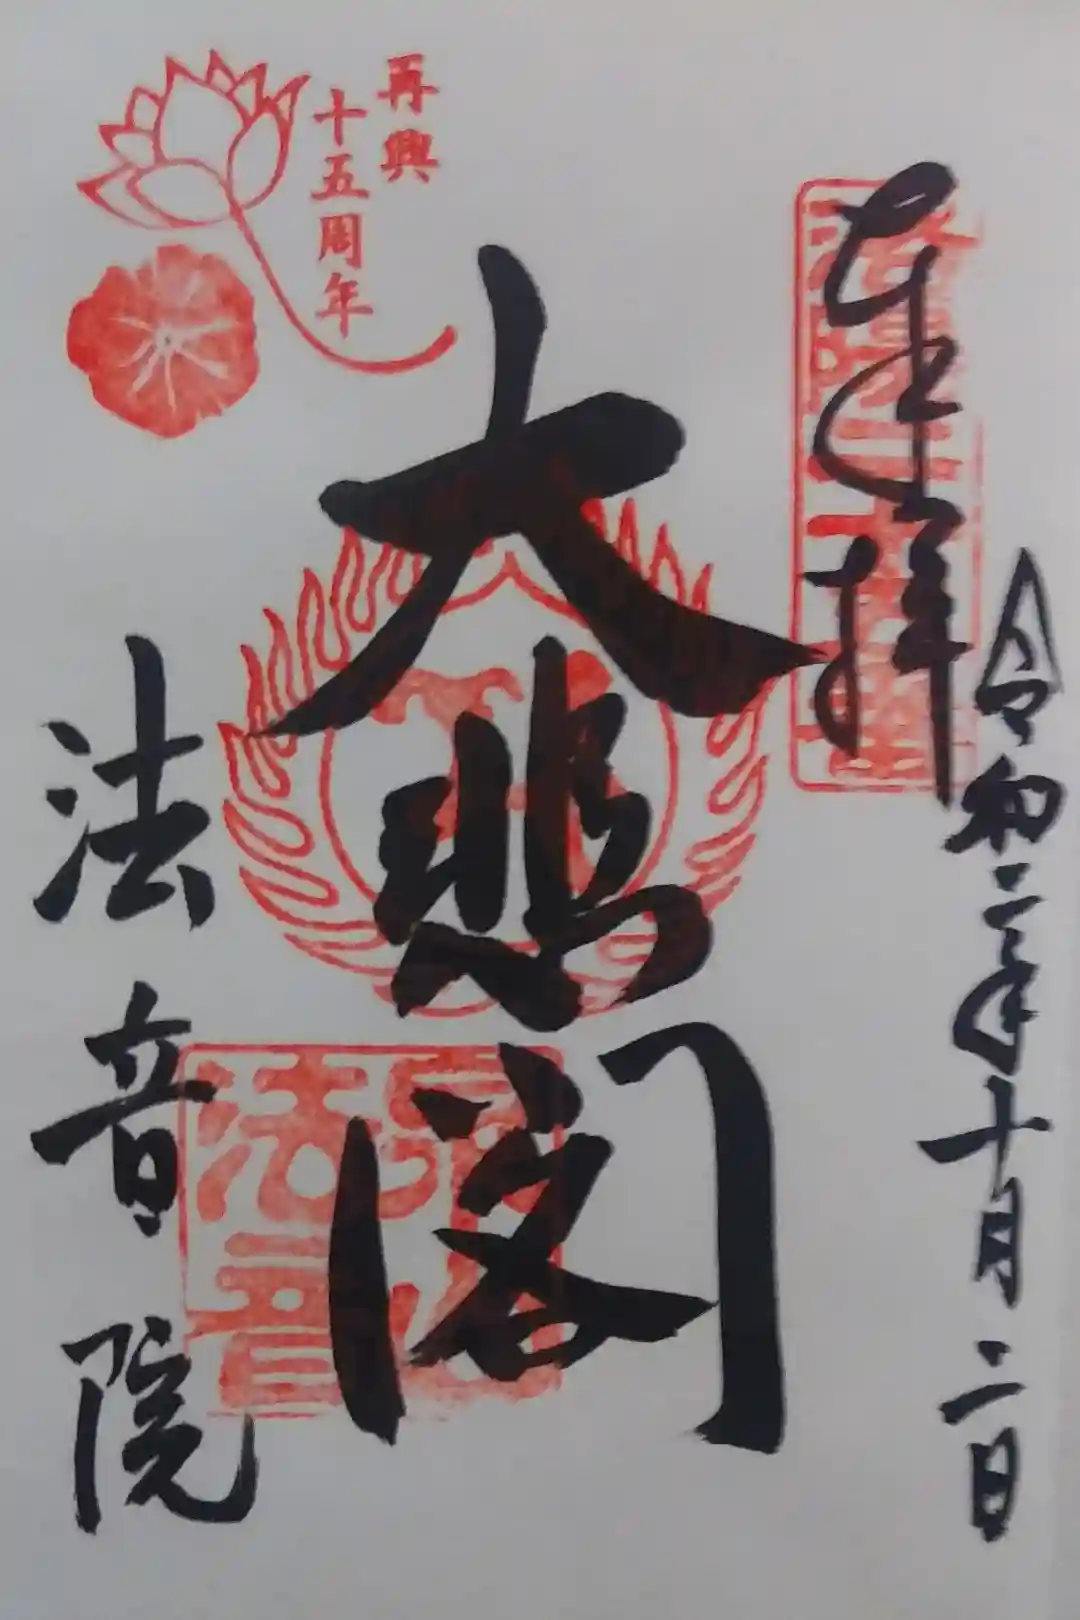 奉拝
令和二年十月二日
大悲閣
再興
十五周年
法音院
法音院